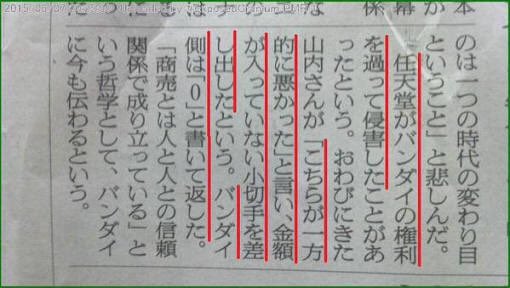 本
が
幕
係
な
のは一つの時代の変わり目
ということ」と悲しんだ。
任天堂がバンダイの権利
を過って侵害したことがあ
ったという。おわびにきた
山内さんが「こちらが一方
的に悪かった」と言い、金額
が入っていない小切手を差
し出したという。バンダイ
側は「0」と書いて返した。
「商売とは人と人との信頼
関係で成り立っている」と
いう哲学として、バンダイ
に今も伝わるという。